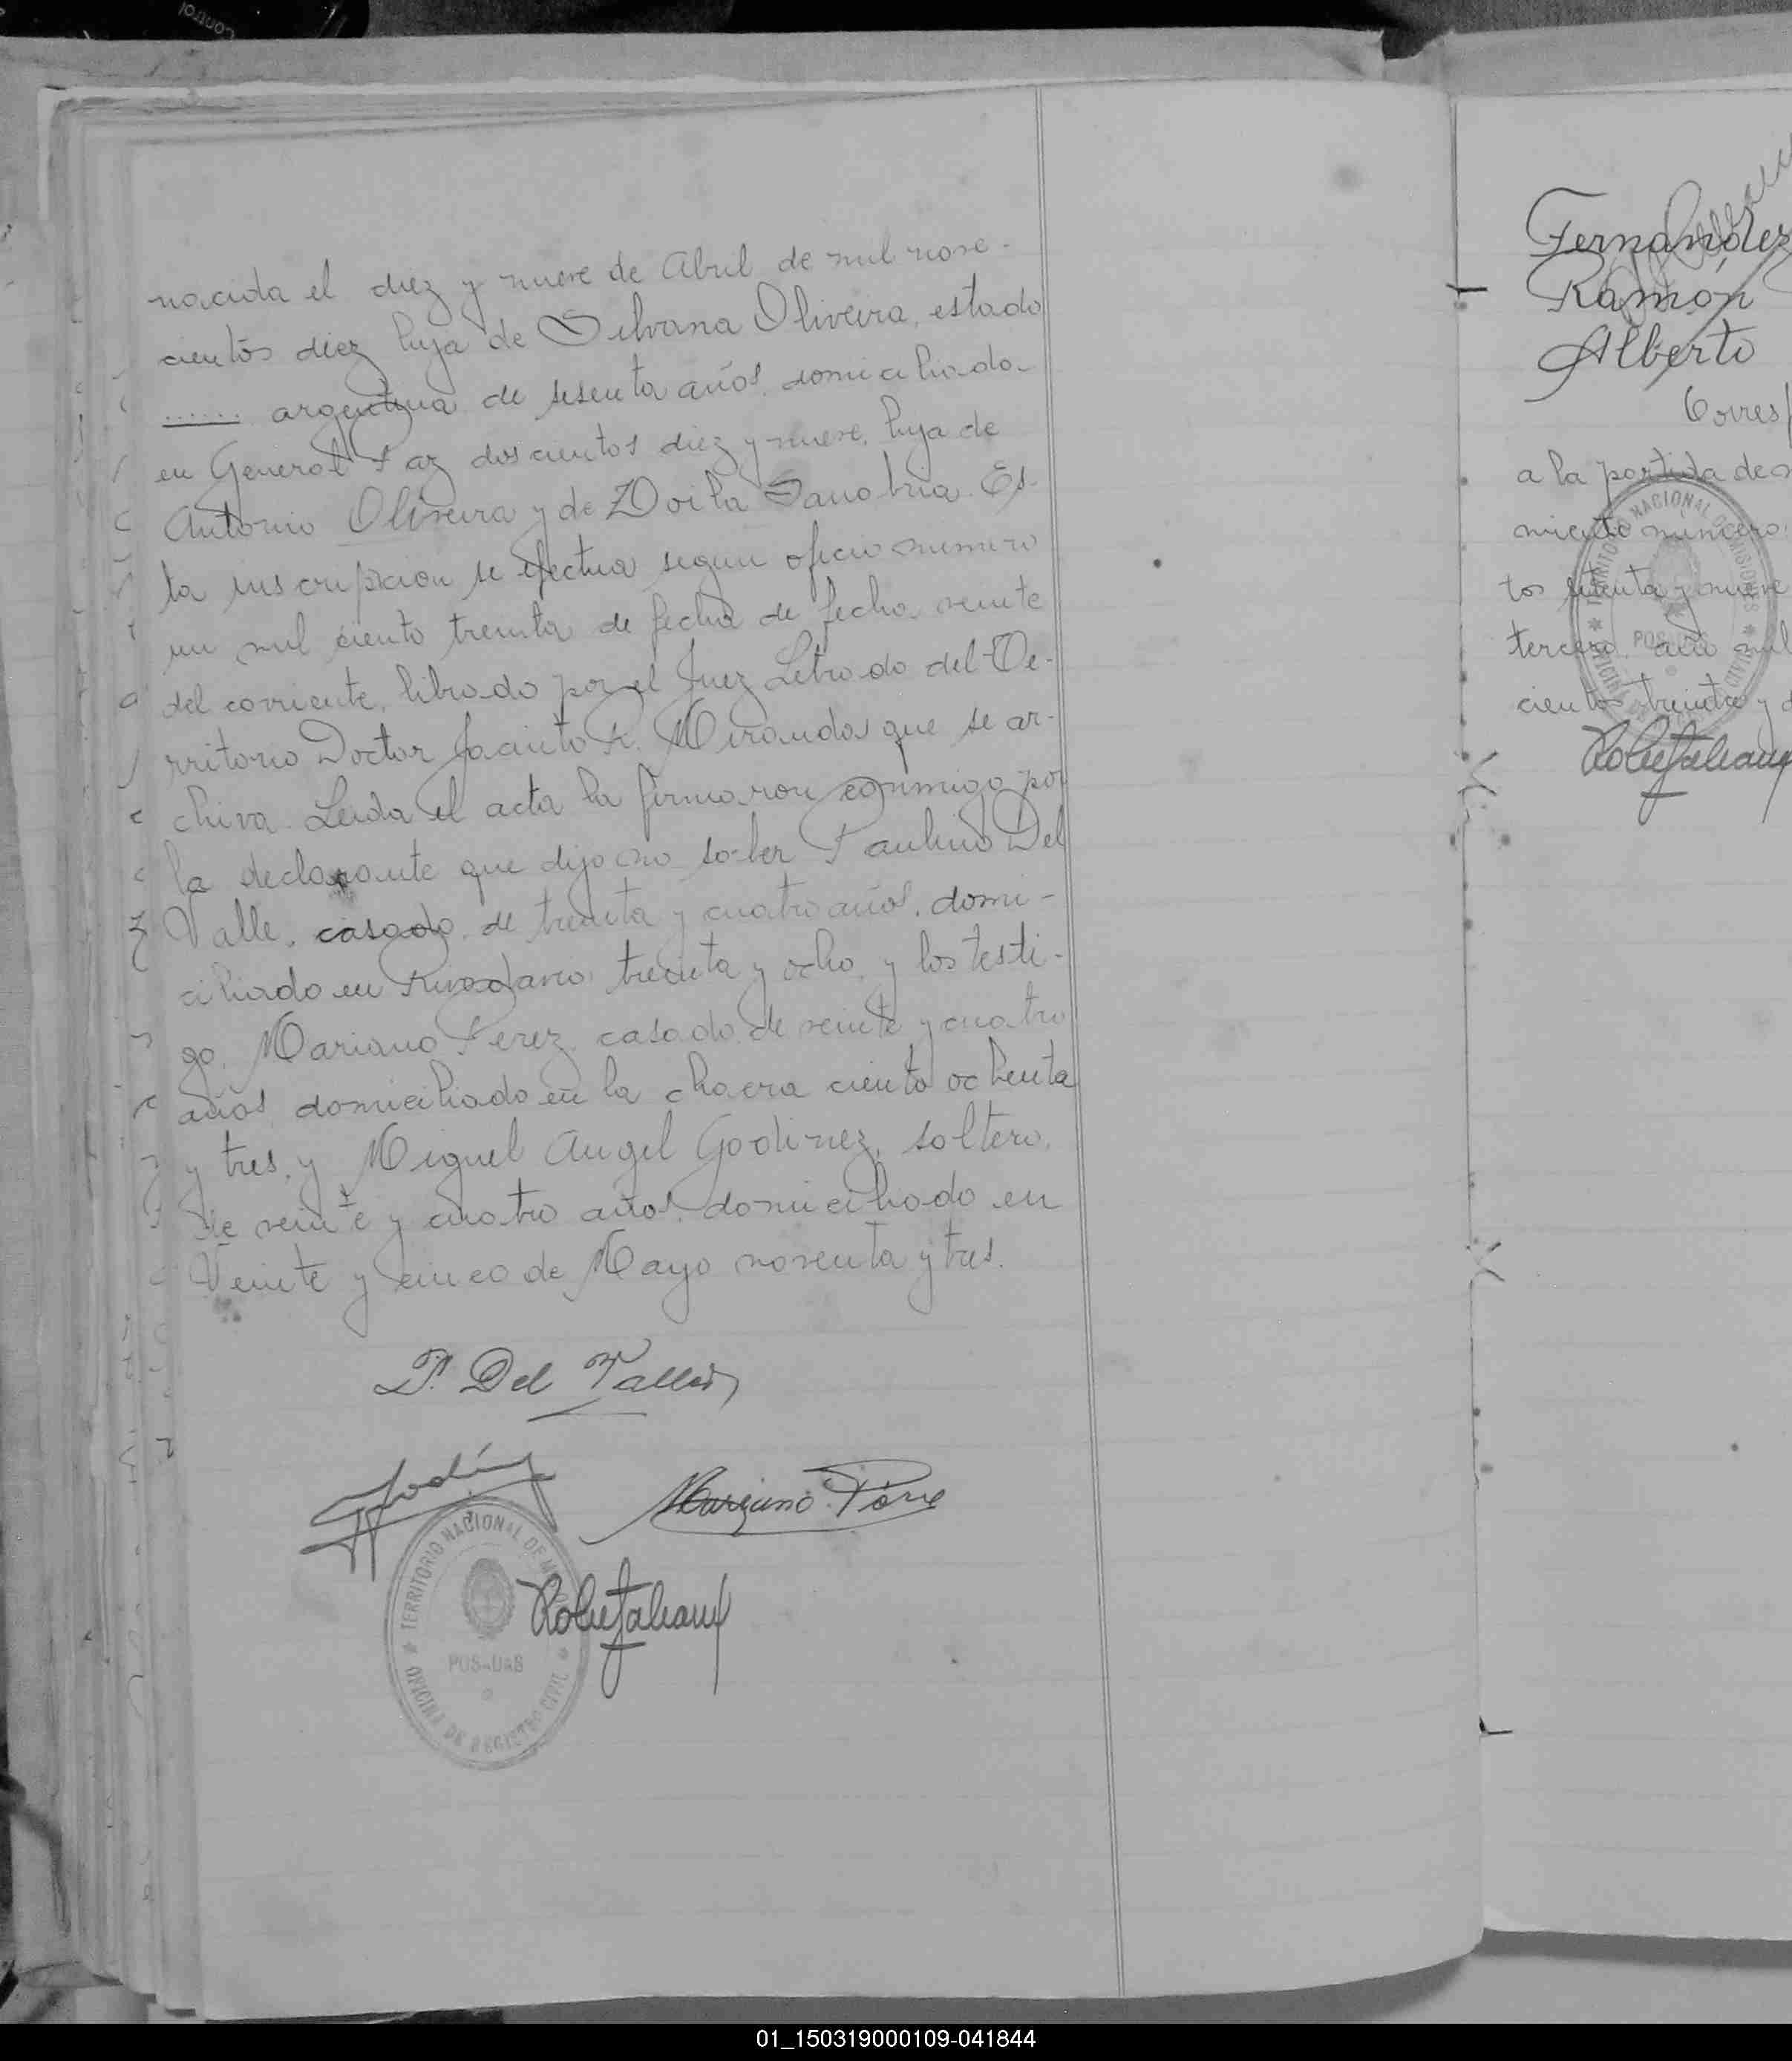 control
nacida el diez y nueve de Abril de mil nove-
cientos diez hija de Silvana Oliveira, estado
...... argentina de sesenta años, domiciliada
en General Paz doscientos diez y nueve, hija de
Antonio Oliveira y de Zoila Sanabria. Es-
ta inscripcion se efectua segun oficio numero
un mil ciento treinta de fecha de fecha veinte
del corriente, librado por el Juez Letrado del Te-
rritorio Doctor Jacinto R. Miranda que se ar-
chiva. Leida el acta la firmaron conmigo por
la declarante que dijo no saber Paulino Del
Valle, casado, de treinta y cuatro años, domi-
ciliado en Rivadavia treinta y ocho, y los testi-
go, Mariano Perez, casado, de veinte y cuatro
años, domiciliado en la chacra ciento ochenta
y tres, y Miguel Angel Godinez, soltero,
de veinte y cuatro años, domiciliado en
Veinte y cinco de Mayo noventa y tres.
P. Del Valle
Mariano Pérez
TERRITORIO NACIONAL DE MISIONES
POSADAS
OFICINA DE REGISTRO CIVIL
Fernandez
Ramón
Alberto
Corresp
a la partida de n
miento numero
tos setenta y nueve
tercero, año mil
cientos treinta y
TERRITORIO NACIONAL DE MISIONES
POSADAS
OFICINA DE REGISTRO CIVIL
01_150319000109-041844